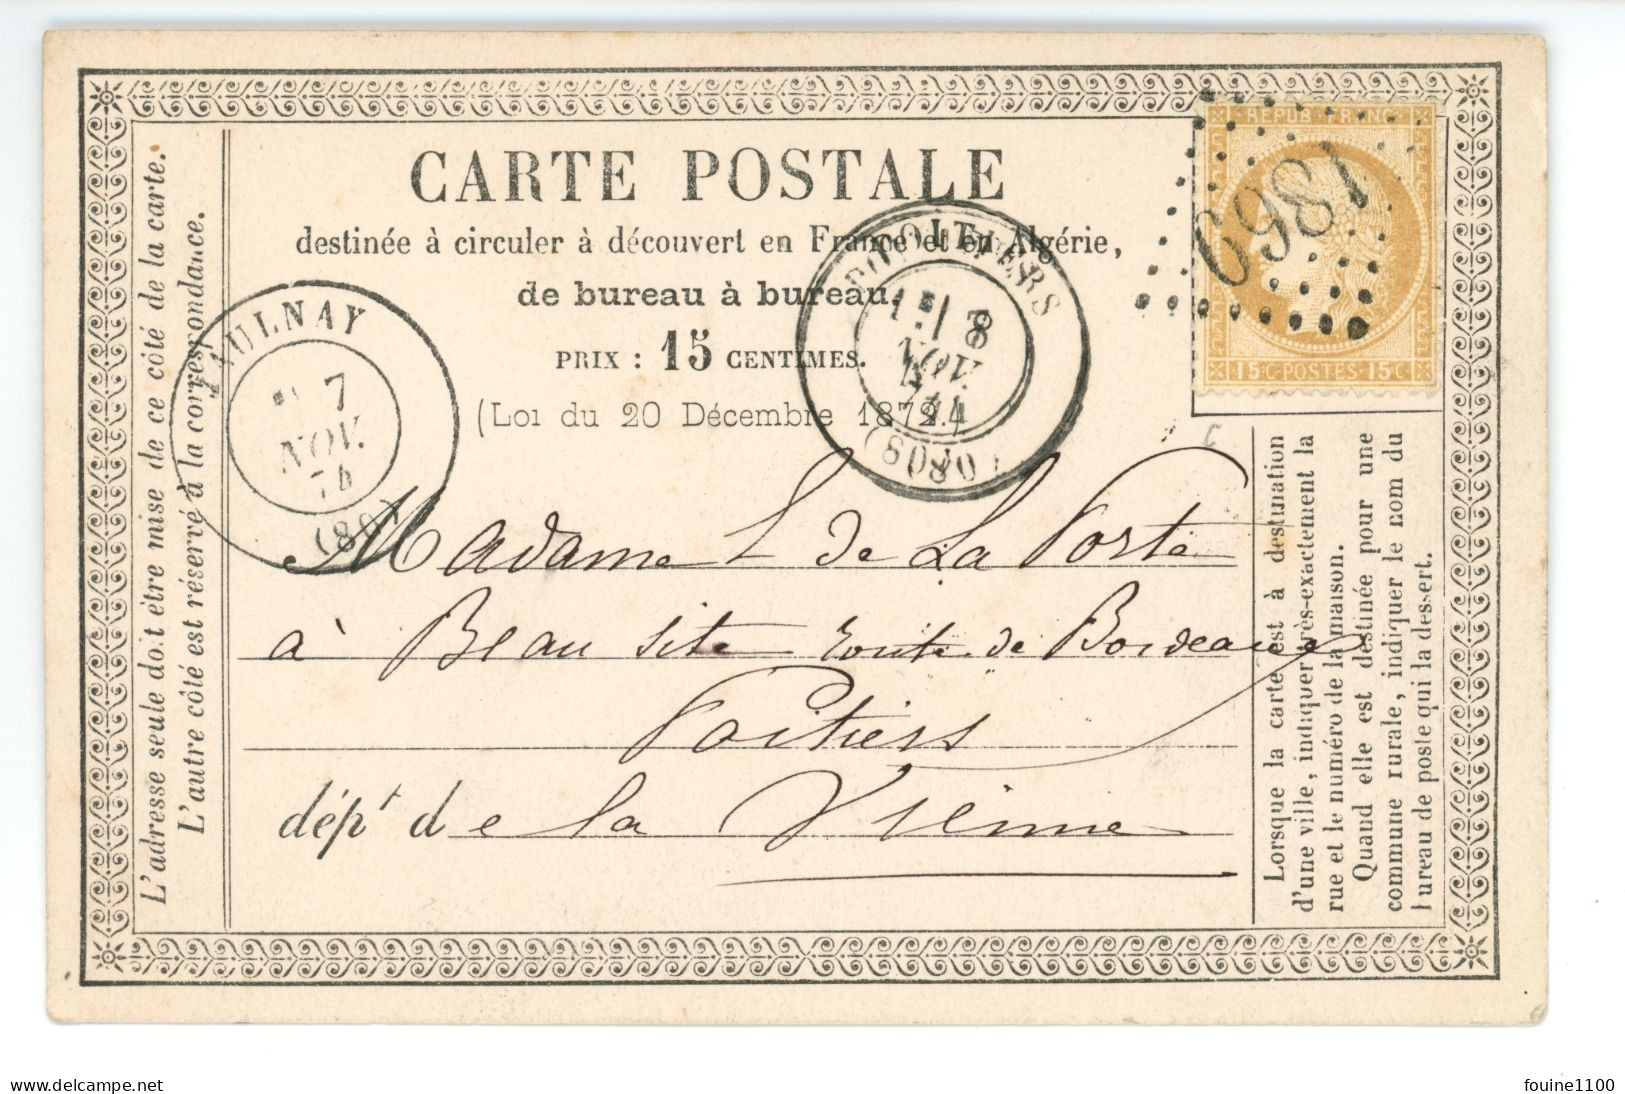 CARTE POSTALE
destinée à circuler à découvert en France et en Algérie,
de bureau à bureau.
PRIX : 15 CENTIMES.
(Loi du 20 Décembre 1872.)
L'adresse seule doit être mise de ce côté de la carte.
L'autre côté est réservé à la correspondance.
AULNAY
7
NOV.
74
POITIERS
8
NOV.
74
REPUB. FRANC
15 C. POSTES 15 C.
Madame L de La Porte
à Beau site route de Bordeaux
Poitiers
dépt de la Vienne
Lorsque la carte est à destination
d'une ville, indiquer très-exactement la
rue et le numéro de la maison.
Quand elle est destinée pour une
commune rurale, indiquer le nom du
bureau de poste qui la dessert.
delcampe.net
fouine1100